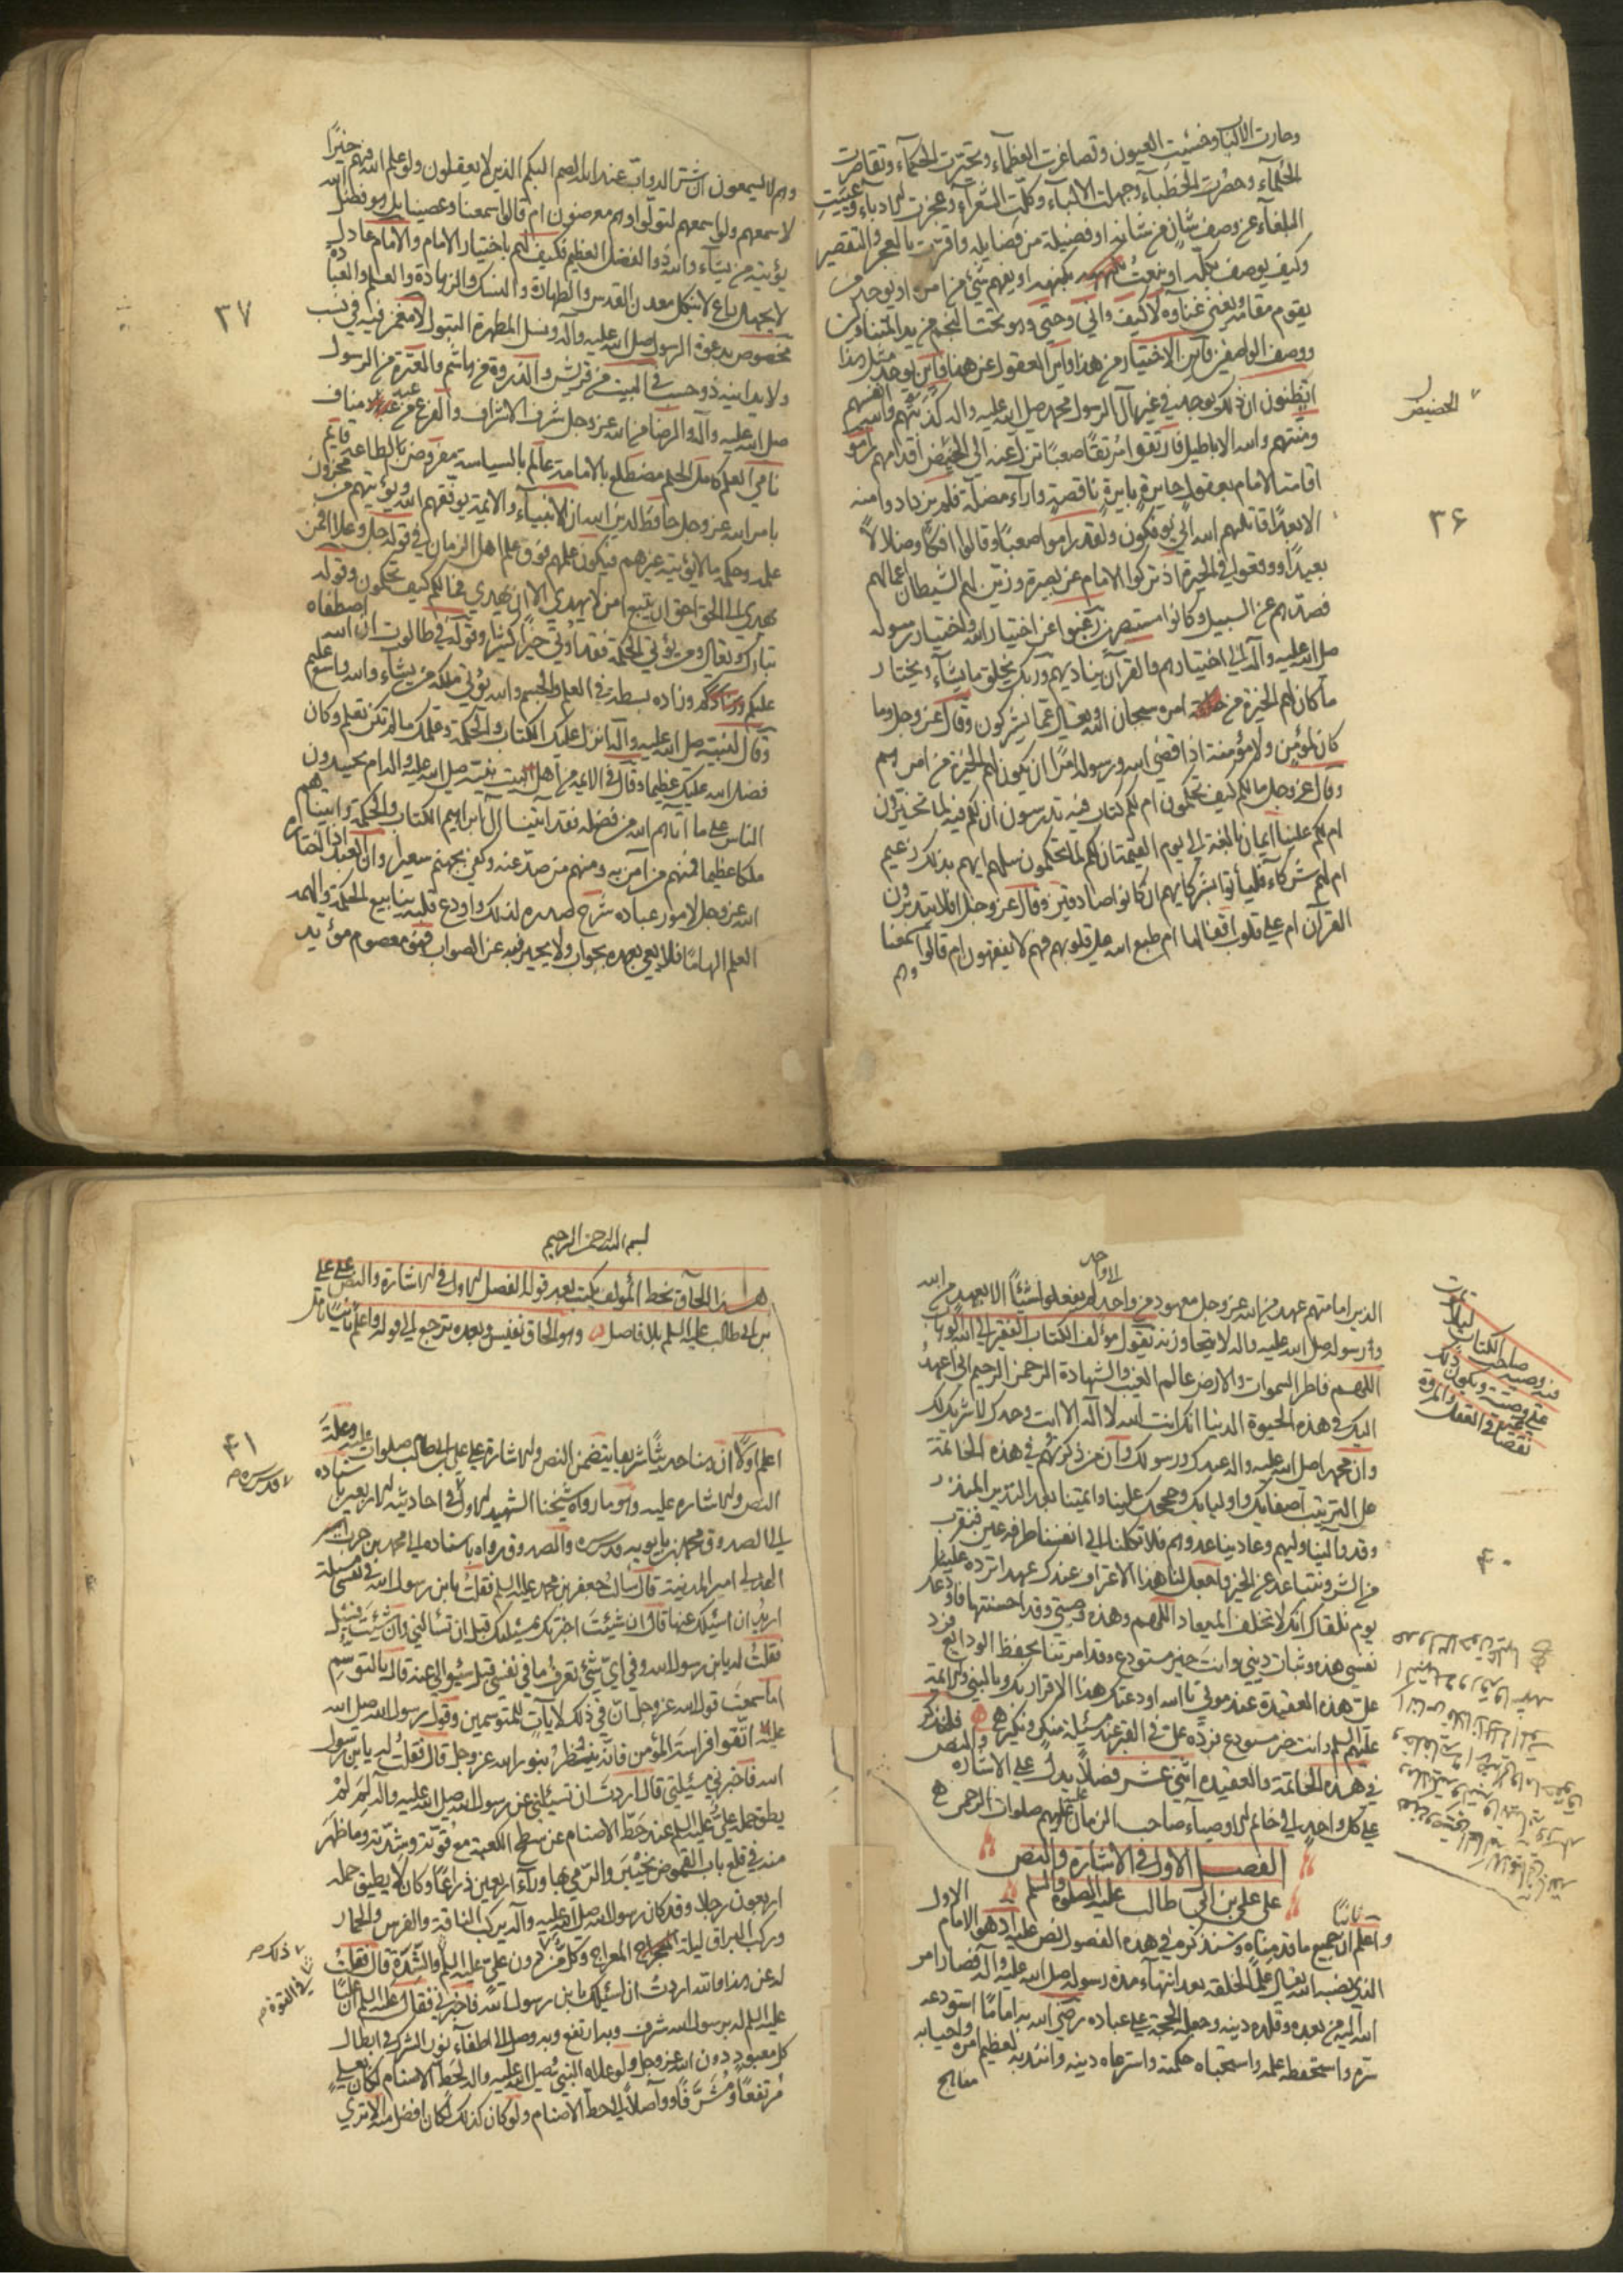 وحارت الألباب وخسئت العيون وتصاغرت العظمآء وتحيرت الحكمآء وتقاصرت
الحلمآء وحصرت الخطبآء وجهلت الألبآء وكلّت الشعرآء وعجزت الادبآء وعييت
البلغآء عن وصف شأن من شأنه او فضيلة من فضايله واقرّت بالعجز والتقصير
وكيف يوصف بكلّه او ينعت بكنهه او يفهم شئ من امره او يوجد من
يقوم مقامه ويغني غناه لا كيف وانّي وحتي وهو بحيث النجم من يد المتناولين
ووصف الواصفين فأين الاختيار من هذا واين العقول عن هذا فأين يوجد مثل هذا
اتظنون ان ذلك يوجد في غير آل الرسول محمد صلى الله عليه واله كذبتهم والله انفسهم
ومنتهم والله الاباطيل فارتقوا مرتقا صعبا تزل عنه الى الحضيض أقدامهم راموا
الحضيض
اقامة الامام بعقول حايرة بايرة ناقصة واراء مضلة فلم يزدادوا منه
الا بعدًا قاتلهم الله انّي يؤفكون ولقد راموا صعبًا وقالوا افكًا وضلالاً
٣۶
بعيدًا ووقعوا في الحيرة اذ تركوا الامام عن بصيرة وزيّن لهم الشيطان اعمالهم
فصدّهم عن السبيل وكانوا مستبصرين رغبوا عن اختيار الله واختيار رسوله
صلى الله عليه وآله الى اختيارهم والقرآن يناديهم وربك يخلق ما يشآء ويختار
ما كان لهم الخيرة من امره سبحان الله وتعالى عما يشركون وقال عز وجل وما
كان لمؤمن ولا مؤمنة اذا قضى الله ورسوله امرًا ان يكون لهم الخيرة من امرهم
وقال عز وجل ما لكم كيف تحكمون ام لكم كتاب فيه تدرسون ان لكم فيه لما تخيرون
ام لكم علينا ايمان بالغة الى يوم القيمة ان لكم لما تحكمون سلهم ايهم بذلك زعيم
ام لهم شركآء فليأتوا بشركايهم ان كانوا صادقين وقال عز وجل افلا يتدبرون
القرآن ام على قلوب اقفالها ام طبع الله على قلوبهم فهم لا يفقهون ام قالوا سمعنا
وهم
وهم لا يسمعون ان شر الدوابّ عند الله الصم البكم الذين لا يعقلون ولو علم الله فيهم خيرًا
لاسمعهم ولو اسمعهم لتولّوا وهم معرضون ام قالوا سمعنا وعصينا بل هو فضل الله
يؤتيه من يشآء والله ذو الفضل العظيم فكيف لهم باختيار الامام والامام عالم
لا يجهل راع لا ينكل معدن القدس والطهارة والنسك والزهادة والعلم والعبادة
٣٧
مخصوص بدعوة الرسول صلى الله عليه وآله ونسل المطهرة البتول لا مغمز فيه في نسب
ولا يدانيه ذو حسب في البيت من قريش والذروة من هاشم والعترة من الرسول
صلى الله عليه وآله والرضا من الله عز وجل شرف الاشراف والفرع من عبد مناف
نامي العلم كامل الحلم مضطلع بالامامة عالم بالسياسة مفروض الطاعة قايم
بامر الله عز وجل حافظ لدين الله ان الانبيآء والايمة يوفقهم الله ويؤتيهم من مخزون
علمه وحكمه ما لا يؤتيه غيرهم فيكون علمهم فوق علم اهل الزمان في قوله جل وعلا افمن
يهدي الى الحق احق ان يتبع امن لا يهدي الا ان يهدي فما لكم كيف تحكمون وقوله
تبارك وتعالى ومن يؤتي الحكمة فقد أوتي خيرًا كثيرًا وقوله في طالوت ان الله اصطفاه
عليكم وزاده بسطة في العلم والجسم والله يؤتي ملكه من يشآء والله واسع عليم
وقال لنبيه صلى الله عليه وآله انزل عليك الكتاب والحكمة وعلمك ما لم تكن تعلم وكان
فضل الله عليك عظيما وقال في الايمة من أهل البيت نبيّه صلى الله عليه واله ام يحسدون
الناس على ما آتاهم الله من فضله فقد آتينا آل ابراهيم الكتاب والحكمة وآتيناهم
ملكا عظيما فمنهم من آمن به ومنهم من صدّ عنه وكفى بجهنم سعيرا وان العبد اذا اختاره
الله عز وجل لامور عباده شرح صدره لذلك واودع قلبه ينابيع الحكمة والهمه
العلم الهامًا فلا يعي بعده بجواب ولا يحير فيه عن الصواب فهو معصوم مؤيد
الاوحد
الذين امامتهم عهد من الله عز وجل معهود من واحد لم يفعلوا شيئًا الا بعهد من الله
ورسوله صلى الله عليه واله لا يتجاوزنه يقول مؤلف الكتاب الفقير الى الله الوهاب
اللهم فاطر السموات والارض عالم الغيب والشهادة الرحمن الرحيم اني اعهد
اليك في هذه الحيوة الدنيا انك انت الله لا اله الا انت وحدك لا شريك لك
وان محمدا صلى الله عليه واله عبدك ورسولك وان من ذكرتهم في هذه الخاتمة
على الترتيب اصفيايك واوليايك وحججك علينا وايمتنا بعد النذير المنذر
وقد والينا وليهم وعادينا عدوهم فلا تكلنا الى انفسنا طرفة عين فنقرب
من الشر ونتباعد عن الخير واجعل لنا هذا الاعتراف عندك عهدا ترده علينا
۴۰
يوم نلقاك انك لا تخلف الميعاد اللهم وهذه وصيتي وقد احسنتها
نفسي هذه وثبات ديني وانت خير مستودع وقد امرتنا بحفظ الودايع فرد
علي هذه العقيدة عند موتي يا الله اودعتك هذا الاقرار بك وبالنبي والايمة
عليهم السلم وانت خير مستودع فردّه علي في القبر عند مسئلة منكر ونكير فلنذكر
في هذه الخاتمة والعقيده اثني عشر فصلاً يدلّ على الاشارة والنص
على كل واحد الى خاتم الاوصيآء صاحب الزمان عليهم صلوات الرحمن
الفصل الاول في الاشارة والنص
على علي بن ابي طالب عليه الصلوة والسلم الاول
ثانيًا
واعلم ان جميع ما قدمناه وسنذكره في هذه الفصول نص عليه اذ هو الامام
الذي نصبه الله تعالى علمًا لخلقه بعد انتهآء مدة رسوله صلى الله عليه وآله فصار امر
الله اليه من بعده وقلده دينه وجعله الحجة على عباده رضي الله به امامًا استودعه
سرّه واستحفظه علمه واستحباه حكمته واسترعاه دينه وانتدبه لعظيم امره واحيا به
مناهج
بسم الله الرحمن الرحيم
هذا الحاق بخط المؤلف يكتب بعد قوله الفصل الاول في الاشارة والنص على علي
بن ابي طالب عليه السلم بلا فاصل وهو الحاق نفيس وبعده ترجع الى قوله واعلم ثانيًا
اعلم اوّلاً ان هنا حديثًا شريفا يتضمن النص والاشارة على علي بن ابي طالب صلوات الله عليه وعلة
۴۱
النص والاشاره عليه وهو ما رواه شيخنا الشهيد الاول في احاديثه الاربعين باسناده
قدس سره
الى الصدوق محمد بن بابويه قدس سره والصدوق رواه باسناده الى محمد بن حرب
الهلالي امير المدينة قال سألت جعفر بن محمد عليه السلم فقلت يابن رسول الله في نفسي مسئلة
اريد ان اسئلك عنها قال ان شئت اخبرتك بمسئلتك قبل ان تسألني وان شئت فسئل
فقلت له يابن رسول الله وفي اي شئ تعرف ما في نفسي قبل سؤالي عنه قال بالتوسم
اما سمعت قول الله عز وجل ان في ذلك لآيات للمتوسمين وقول رسول الله صلى الله
عليه اتّقوا فراسة المؤمن فانّه ينظر بنور الله عز وجل قال فقلت له يابن رسول
الله فاخبرني بمسئلتي قال اردت ان تسألني عن رسول الله صلى الله عليه واله لم لم
يطق حمله علي عليه السلم عند حطّ الاصنام عن سطح الكعبة مع قوّته وشدّته وما ظهر
منه في قلع باب القموص بخيبر والرمي بها ورآء اربعين ذراعًا وكان لا يطيق حمله
اربعون رجلا وقد كان رسول الله صلى الله عليه وآله يركب الناقة والفرس والحمار
وركب البراق ليلة المعراج وكل ذلك دون علي عليه السلم والشدّة قال فقلت
ذلك
في القوة
له عن هذا والله اردت ان اسئلك يابن رسول الله فاخبرني فقال عليه السلم ان عليًّا
عليه السلم برسول الله شرف وبه ارتفع وبه وصل الى اطفآء نور الشرك وابطال
كل معبود دون الله عز وجل ولو علاه النبي صلى الله عليه واله لحط الاصنام لكان بعلي
مرتفعًا ومشرّفًا وواصلاً الى حط الاصنام ولو كان كذلك لكان افضل منه الا ترى